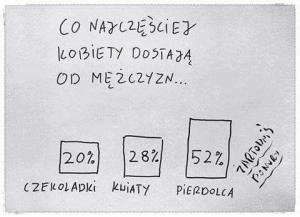 CO NAJCZĘŚCIEJ
KOBIETY DOSTAJĄ
OD MĘŻCZYZN...
20% 28% 52%
CZEKOLADKI KWIATY PIERDOLCA
ŻARTOWNIŚ
PONURY